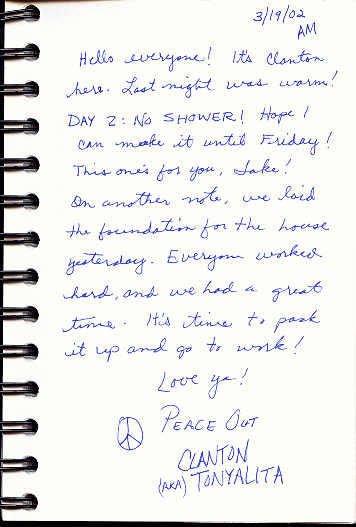 3/19/02
AM
Hello everyone! It's Clanton
here. Last night was warm!
DAY 2: NO SHOWER! Hope I
can make it until Friday!
This one's for you, Jake!
On another note, we laid
the foundation for the house
yesterday. Everyone worked
hard, and we had a great
time. It's time to pack
it up and go to work!
Love ya!
PEACE OUT
CLANTON
(AKA) TONYALITA